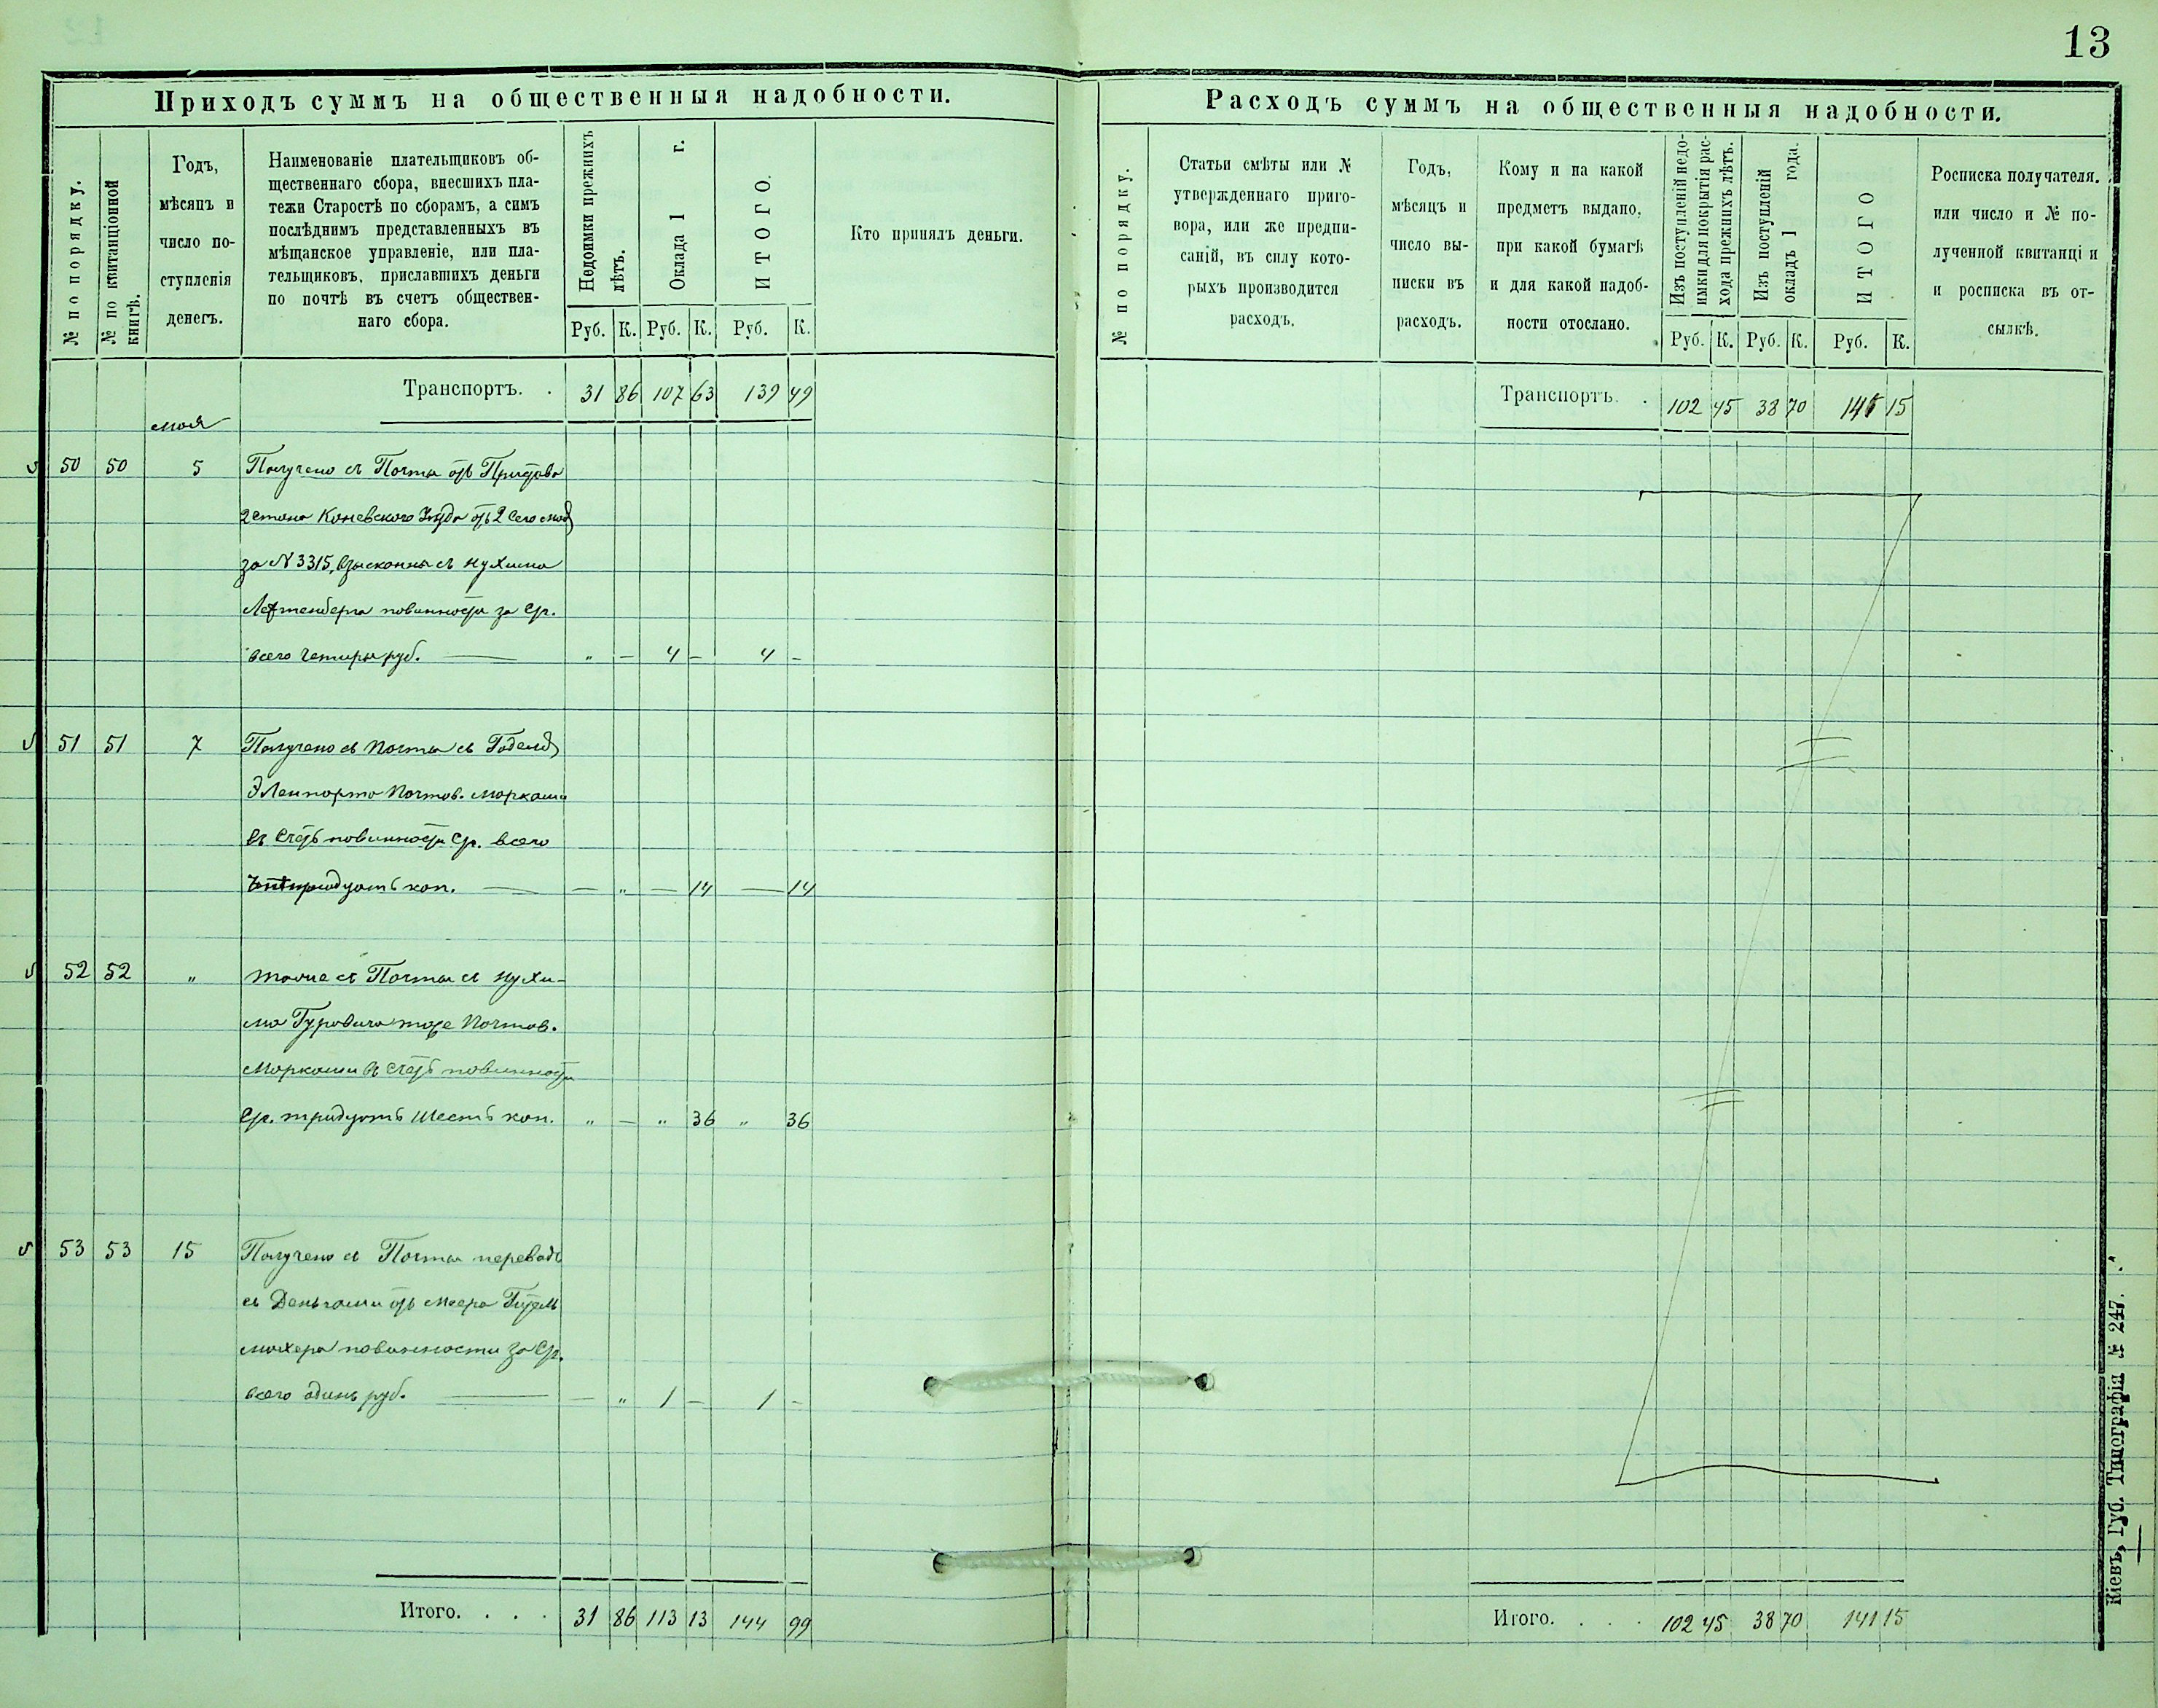 13
Приходъ суммъ на общественныя надобности.
№ по порядку.
№ по квитанціонной книгѣ.
Годъ,
мѣсяцъ и
число по-
ступленія
денегъ.
Наименованіе плательщиковъ об-
щественнаго сбора, внесшихъ пла-
тежи Старостѣ по сборамъ, а симъ
послѣднимъ представленныхъ въ
мѣщанское управленіе, или пла-
тельщиковъ, приславшихъ деньги
по почтѣ въ счетъ обществен-
наго сбора.
Недоимки прежнихъ лѣтъ.
Оклада 1 г.
ИТОГО.
Руб. К. Руб. К. Руб. К.
Кто принялъ деньги.
Транспортъ. . 31 86 107 63 139 49
мая
50 50 5 Получено съ Почты отъ Пристава
2 стана Каневского Уѣзда отъ 2 сего мая
за № 3315, взысканны съ Нухима
повинности за
всего четыре руб. — „ — 4 — 4 —
51 51 7 Получено съ Почты съ
Почтов. марками
въ счетъ повинности всего
копъ. — — „ — 14 — 14
52 52 „ тоже съ Почты съ Нухи-
ма Гуровича тоже Почтов.
Марками въ счетъ повинности
тридцать шесть коп. „ — „ 36 „ 36
53 53 15 Получено съ Почты переводъ
съ Деньгами отъ Меера
махера повинности за
всего одинъ руб. — — „ 1 — 1 —
Итого. . . . 31 86 113 13 144 99
Расходъ суммъ на общественныя надобности.
№ по порядку.
Статьи смѣты или №
утвержденнаго приго-
вора, или же предпи-
саній, въ силу кото-
рыхъ производится
расходъ.
Годъ,
мѣсяцъ и
число вы-
писки въ
расходъ.
Кому и на какой
предметъ выдано,
при какой бумагѣ
и для какой надоб-
ности отослано.
Изъ поступленій недо-
имки для покрытія рас-
хода прежнихъ лѣтъ.
Изъ поступленій
окладъ 1 года.
ИТОГО
Руб. К. Руб. К. Руб. К.
Росписка получателя.
или число и № по-
лученной квитанціи
и росписка въ от-
сылкѣ.
Транспортъ. . 102 45 38 70 141 15
Итого. . . . 102 45 38 70 141 15
Кіевъ, Губ. Типографія № 247.